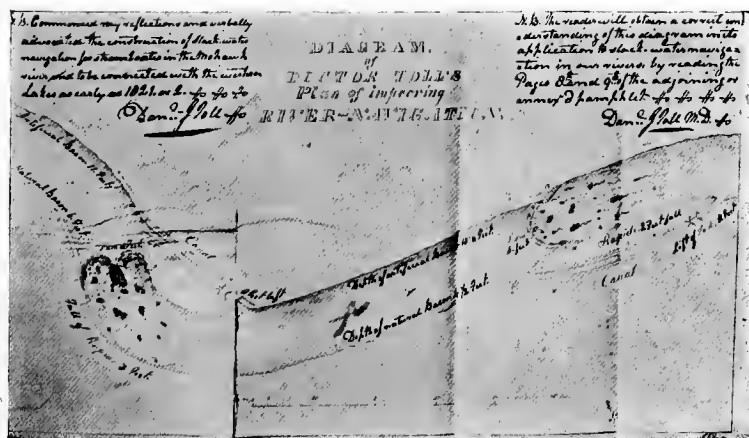 N.B. Commenced my reflections and verbally
advocated the construction of slack water
navigation for steamboats in the Mohawk
river and to be connected with the western
Lakes as early as 1821. or 2.
Danl. J Toll
DIAGRAM.
of
DICTOR TOLL'S
Plan of improving
RIVER-NAVIGATION.
N.B. The reader will obtain a correct un=
=derstanding of this diagram in its
application to slack-water naviga=
=tion in our rivers by reading the
Pages 8th and 9th of the adjoining or
annex'd pamphlet
Danl. J Toll M.D.
Artificial Basin
Natural Basin
Canal
Fall of Rapids Feet
feet lift
Depth of artificial Basin Feet
Depth of natural Basin Feet.
Rapids Feet fall
Canal
Lift of Lock Feet